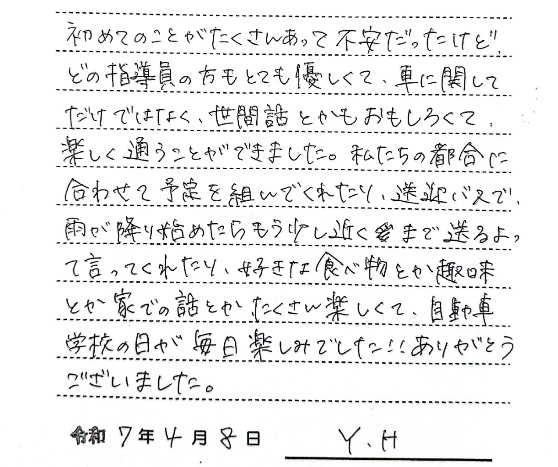 初めてのことがたくさんあって不安だったけど、
どの指導員の方もとても優しくて、車に関して
だけではなく、世間話とかもおもしろくて、
楽しく通うことができました。私たちの都合に
合わせて予定を組んでくれたり、送迎バスで、
雨が降り始めたらもう少し近くまで送るよっ
て言ってくれたり、好きな食べ物とか趣味
とか家での話とかたくさん楽しくて、自動車
学校の日が毎日楽しみでした!!ありがとう
ございました。
令和7年4月8日 Y.H